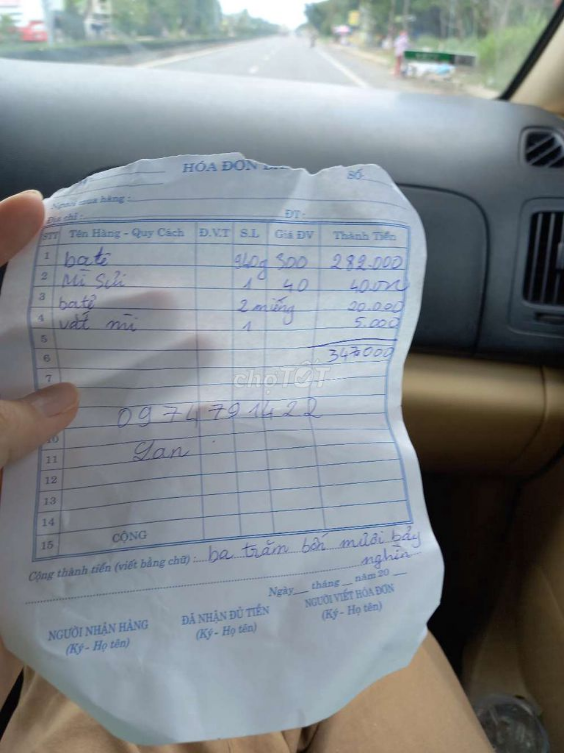 HÓA ĐƠN
SỐ:
Người mua hàng :
Địa chỉ : ĐT:
STT Tên Hàng - Quy Cách Đ.V.T S.L Giá ĐV Thành Tiền
1 batê 940g 300 282.000
2 mì sủi 1 40 40.000
3 batê 2 miếng 20.000
4 vắt mì 1 5.000
5
6 347.000
7
choTỐT
0974791422
10
11 Lan
12
13
14
15 CỘNG
Cộng thành tiền (viết bằng chữ) : ba trăm bốn mươi bảy
nghìn
Ngày__ tháng __ năm 20 __
NGƯỜI NHẬN HÀNG ĐÃ NHẬN ĐỦ TIỀN NGƯỜI VIẾT HÓA ĐƠN
(Ký - Họ tên) (Ký - Họ tên) (Ký - Họ tên)